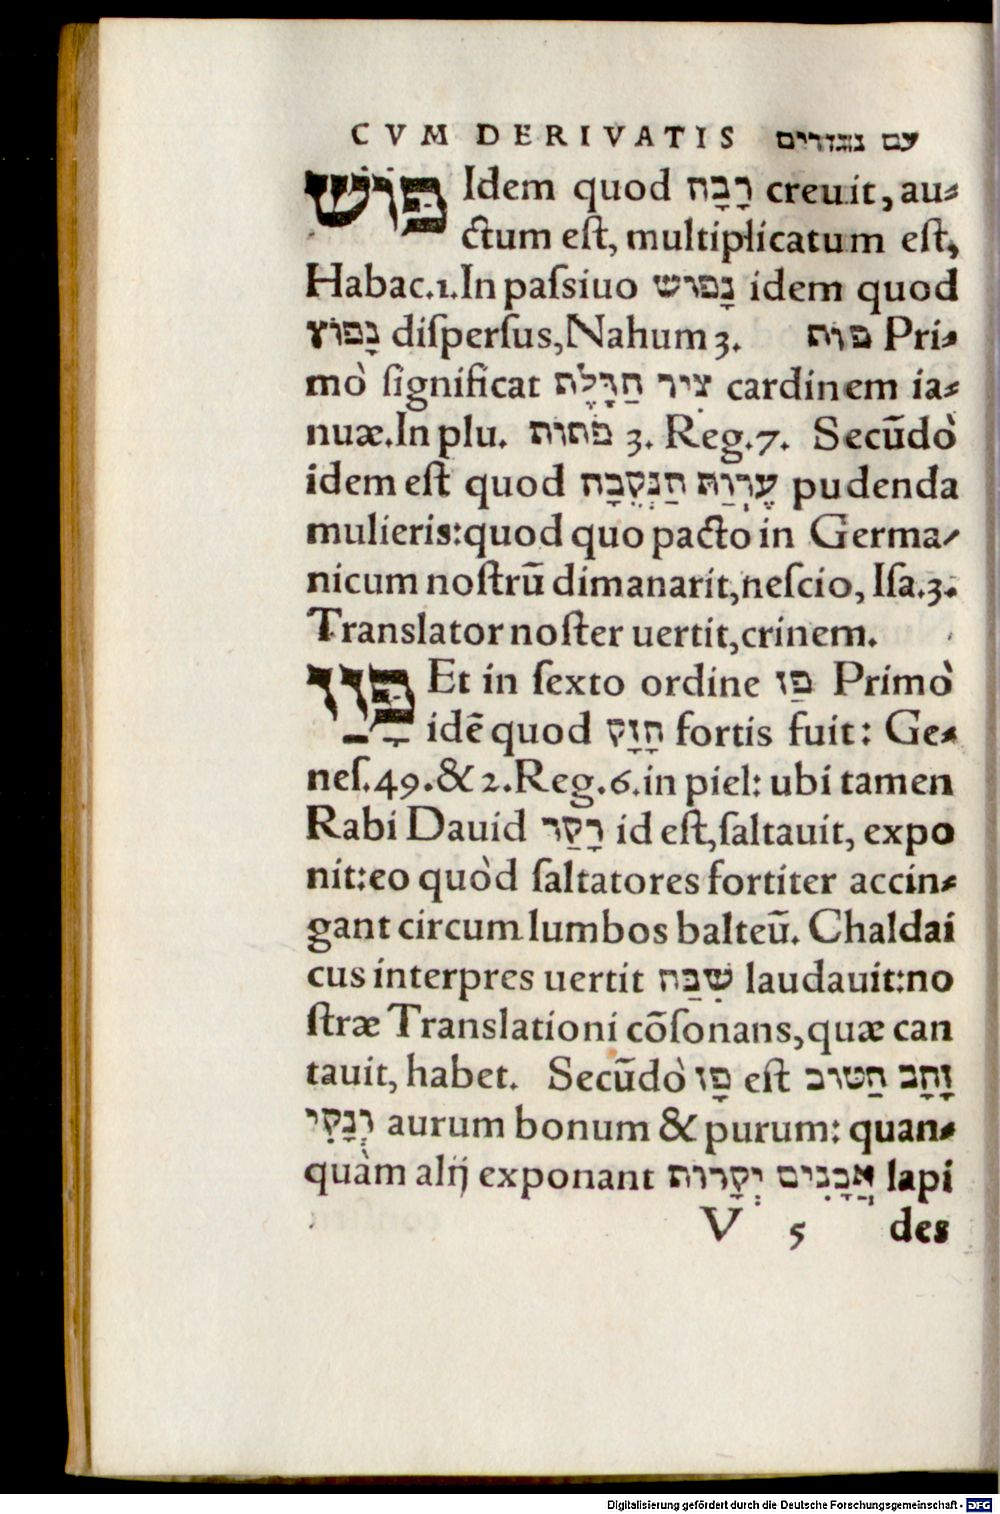 CVM DERIVATIS עם נגזרים
פּוּשׁ Idem quod רָבָה creuit, au⸗
ctum eſt, multiplicatum eſt,
Habac.1.In paſsiuo נָפוּשׁ idem quod
נָפוֹץ diſperſus,Nahum 3. פּוּת Pri⸗
mò ſignificat צִיר הַדֶּלֶת cardinem ia⸗
nuæ.In plu. פֹּתוֹת 3. Reg.7. Secũdò
idem eſt quod עֶרְוַת הַנְּקֵבָה pudenda
mulieris:quod quo pacto in Germa⸗
nicum noſtrũ dimanarit,neſcio, Iſa.3.
Translator noſter uertit,crinem.
פָּזַז Et in ſexto ordine פַּז Primò
idẽ quod חָזָק fortis fuit: Ge⸗
neſ.49.& 2.Reg.6.in piel: ubi tamen
Rabi Dauid רָקַד id eſt,ſaltauit, expo
nit:eo quòd ſaltatores fortiter accin⸗
gant circum lumbos balteũ. Chaldai
cus interpres uertit שִׁבַּח laudauit:no
ſtræ Translationi cõſonans,quæ can
tauit, habet. Secũdò פָּז eſt זָהָב הַטּוֹב
וְנָקִי aurum bonum & purum: quan⸗
quàm alij exponant אֲבָנִים יְקָרוֹת lapi
V 5 des
Digitalisierung gefördert durch die Deutsche Forschungsgemeinschaft - DFG